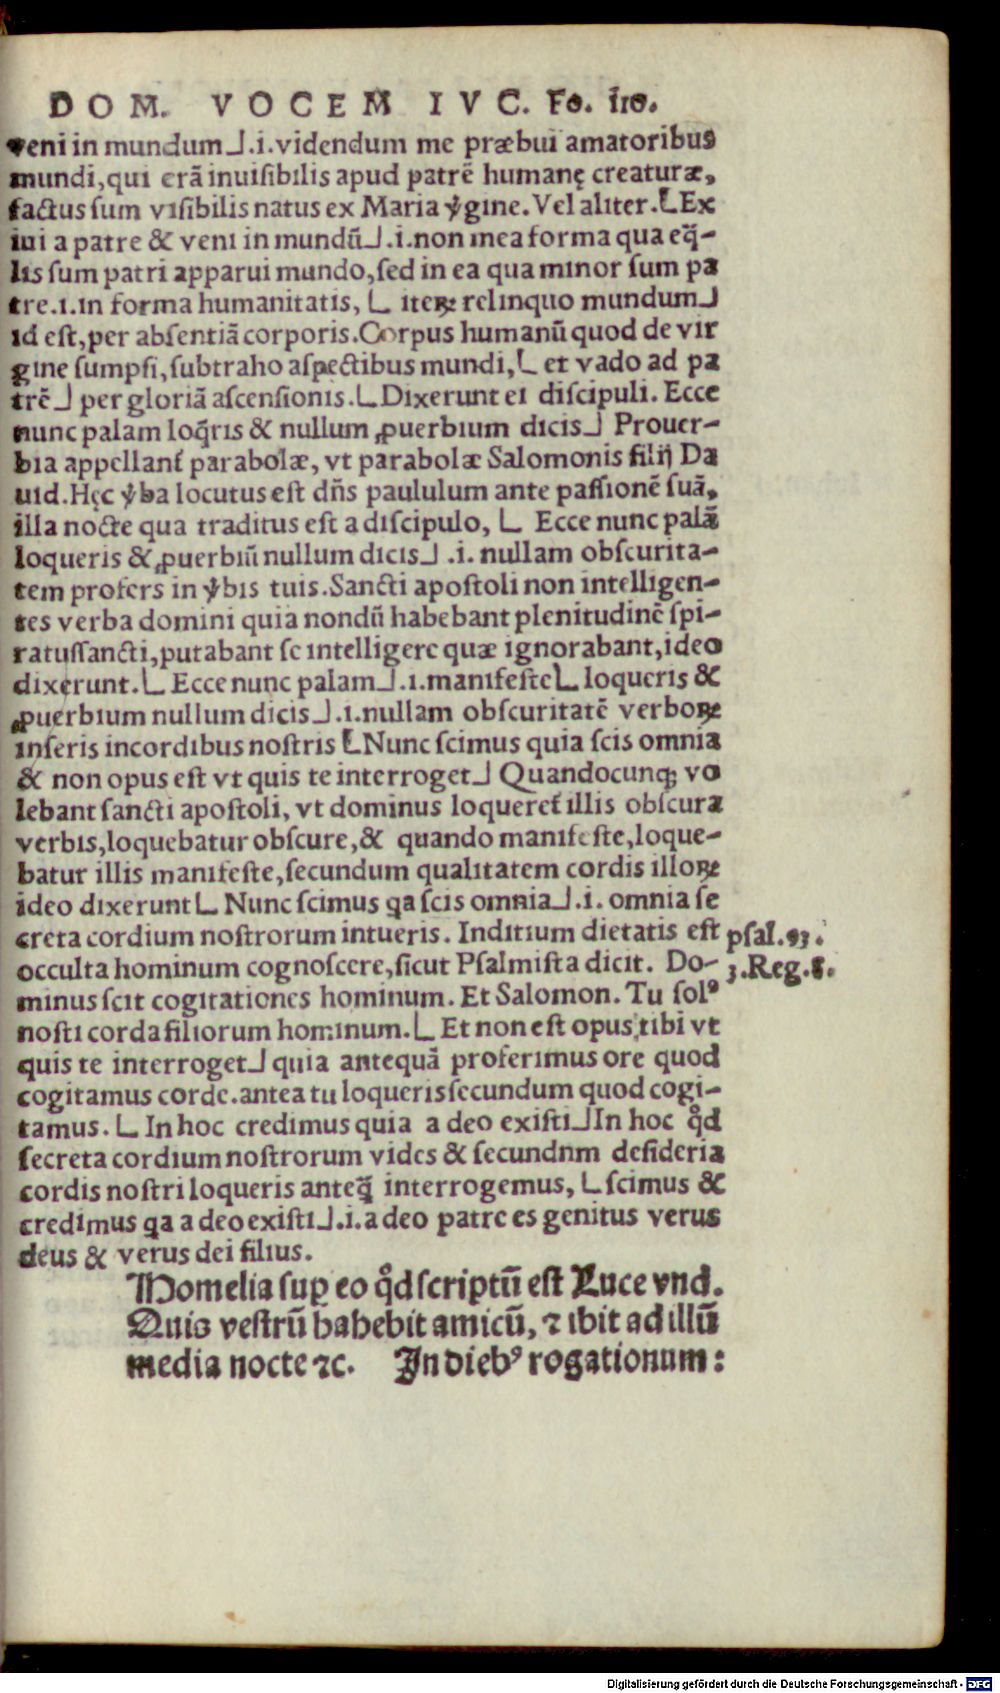 DOM. VOCEM IVC. Fo. 110.
veni in mundum⅃.i.videndum me præbui amatoribus
mundi,qui erã inuisibilis apud patrẽ humanę creaturæ,
factus sum visibilis natus ex Maria ꝟgine.Vel aliter.⅃Ex
iui a patre & veni in mundũ⅃.i.non mea forma qua eq̃-
lis sum patri apparui mundo,sed in ea qua minor sum pa
tre.i.in forma humanitatis, L iteꝝ relinquo mundum⅃
id est,per absentiã corporis.Corpus humanũ quod de vir
gine sumpsi,subtraho aspectibus mundi,L et vado ad pa
trẽ⅃ per gloriã ascensionis.L Dixerunt ei discipuli. Ecce
nunc palam loq̃ris & nullum ꝓuerbium dicis⅃ Prouer-
bia appellant᷑ parabolæ, vt parabolæ Salomonis filij Da
uid.Hęc ꝟba locutus est dñs paululum ante passionẽ suã,
illa nocte qua traditus est a discipulo, L Ecce nunc palã
loqueris & ꝓuerbiũ nullum dicis⅃.i. nullam obscurita-
tem profers in ꝟbis tuis.Sancti apostoli non intelligen-
tes verba domini quia nondũ habebant plenitudinẽ spi-
ritussancti,putabant se intelligere quæ ignorabant,ideo
dixerunt.L Ecce nunc palam⅃.i.manifeste L loqueris &
ꝓuerbium nullum dicis⅃.i.nullam obscuritatẽ verboꝝ
inseris incordibus nostris L Nunc scimus quia scis omnia
& non opus est vt quis te interroget⅃ Quandocunqꝫ vo
lebant sancti apostoli, vt dominus loqueret᷑ illis obscura
verbis,loquebatur obscure,& quando manifeste,loque-
batur illis manifeste,secundum qualitatem cordis illoꝝ
ideo dixerunt L Nunc scimus ꝗa scis omnia⅃.i. omnia se
creta cordium nostrorum intueris. Inditium dietatis est psal.93.
occulta hominum cognoscere,sicut Psalmista dicit. Do- 3.Reg.8.
minus scit cogitationes hominum. Et Salomon. Tu solꝰ
nosti corda filiorum hominum.L Et non est opus tibi vt
quis te interroget⅃ quia antequã proferimus ore quod
cogitamus corde.antea tu loqueris secundum quod cogi-
tamus. L In hoc credimus quia a deo existi⅃In hoc qͦd
secreta cordium nostrorum vides & secundnm desideria
cordis nostri loqueris anteq̃ interrogemus, L scimus &
credimus ꝗa a deo existi⅃.i.a deo patre es genitus verus
deus & verus dei filius.
Homelia suꝑ eo qͦd scriptũ est Luce vnd.
Quis vestrũ habebit amicũ, ⁊ ibit ad illũ
media nocte ⁊c. In diebꝰ rogationum:
Digitalisierung gefördert durch die Deutsche Forschungsgemeinschaft - DFG